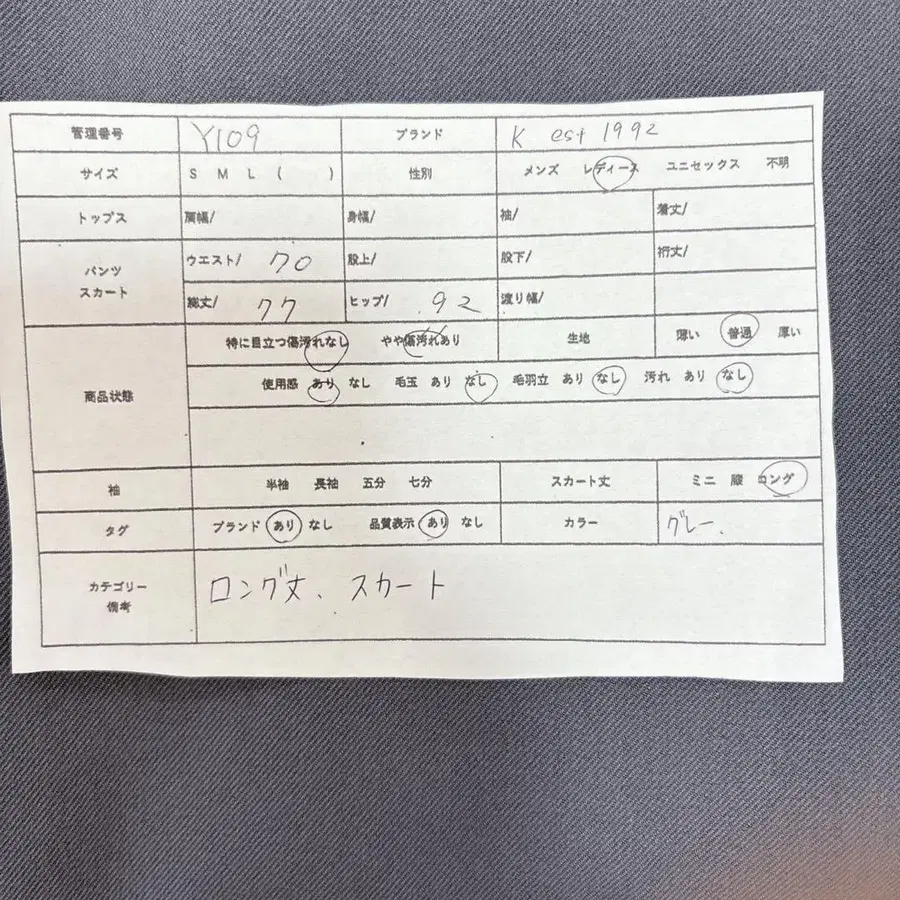 管理番号 Y109 ブランド K est 1992
サイズ S M L ( ) 性別 メンズ レディース ユニセックス 不明
トップス 肩幅/ 身幅/ 袖/ 着丈/
パンツ スカート ウエスト/ 70 股上/ 股下/ 裄丈/
総丈/ 77 ヒップ/ 92 渡り幅/
商品状態 特に目立つ傷汚れなし やや傷汚れあり 生地 薄い 普通 厚い
使用感 あり なし 毛玉 あり なし 毛羽立 あり なし 汚れ あり なし
袖 半袖 長袖 五分 七分 スカート丈 ミニ 膝 ロング
タグ ブランド あり なし 品質表示 あり なし カラー グレー.
カテゴリー 備考 ロング丈、スカート